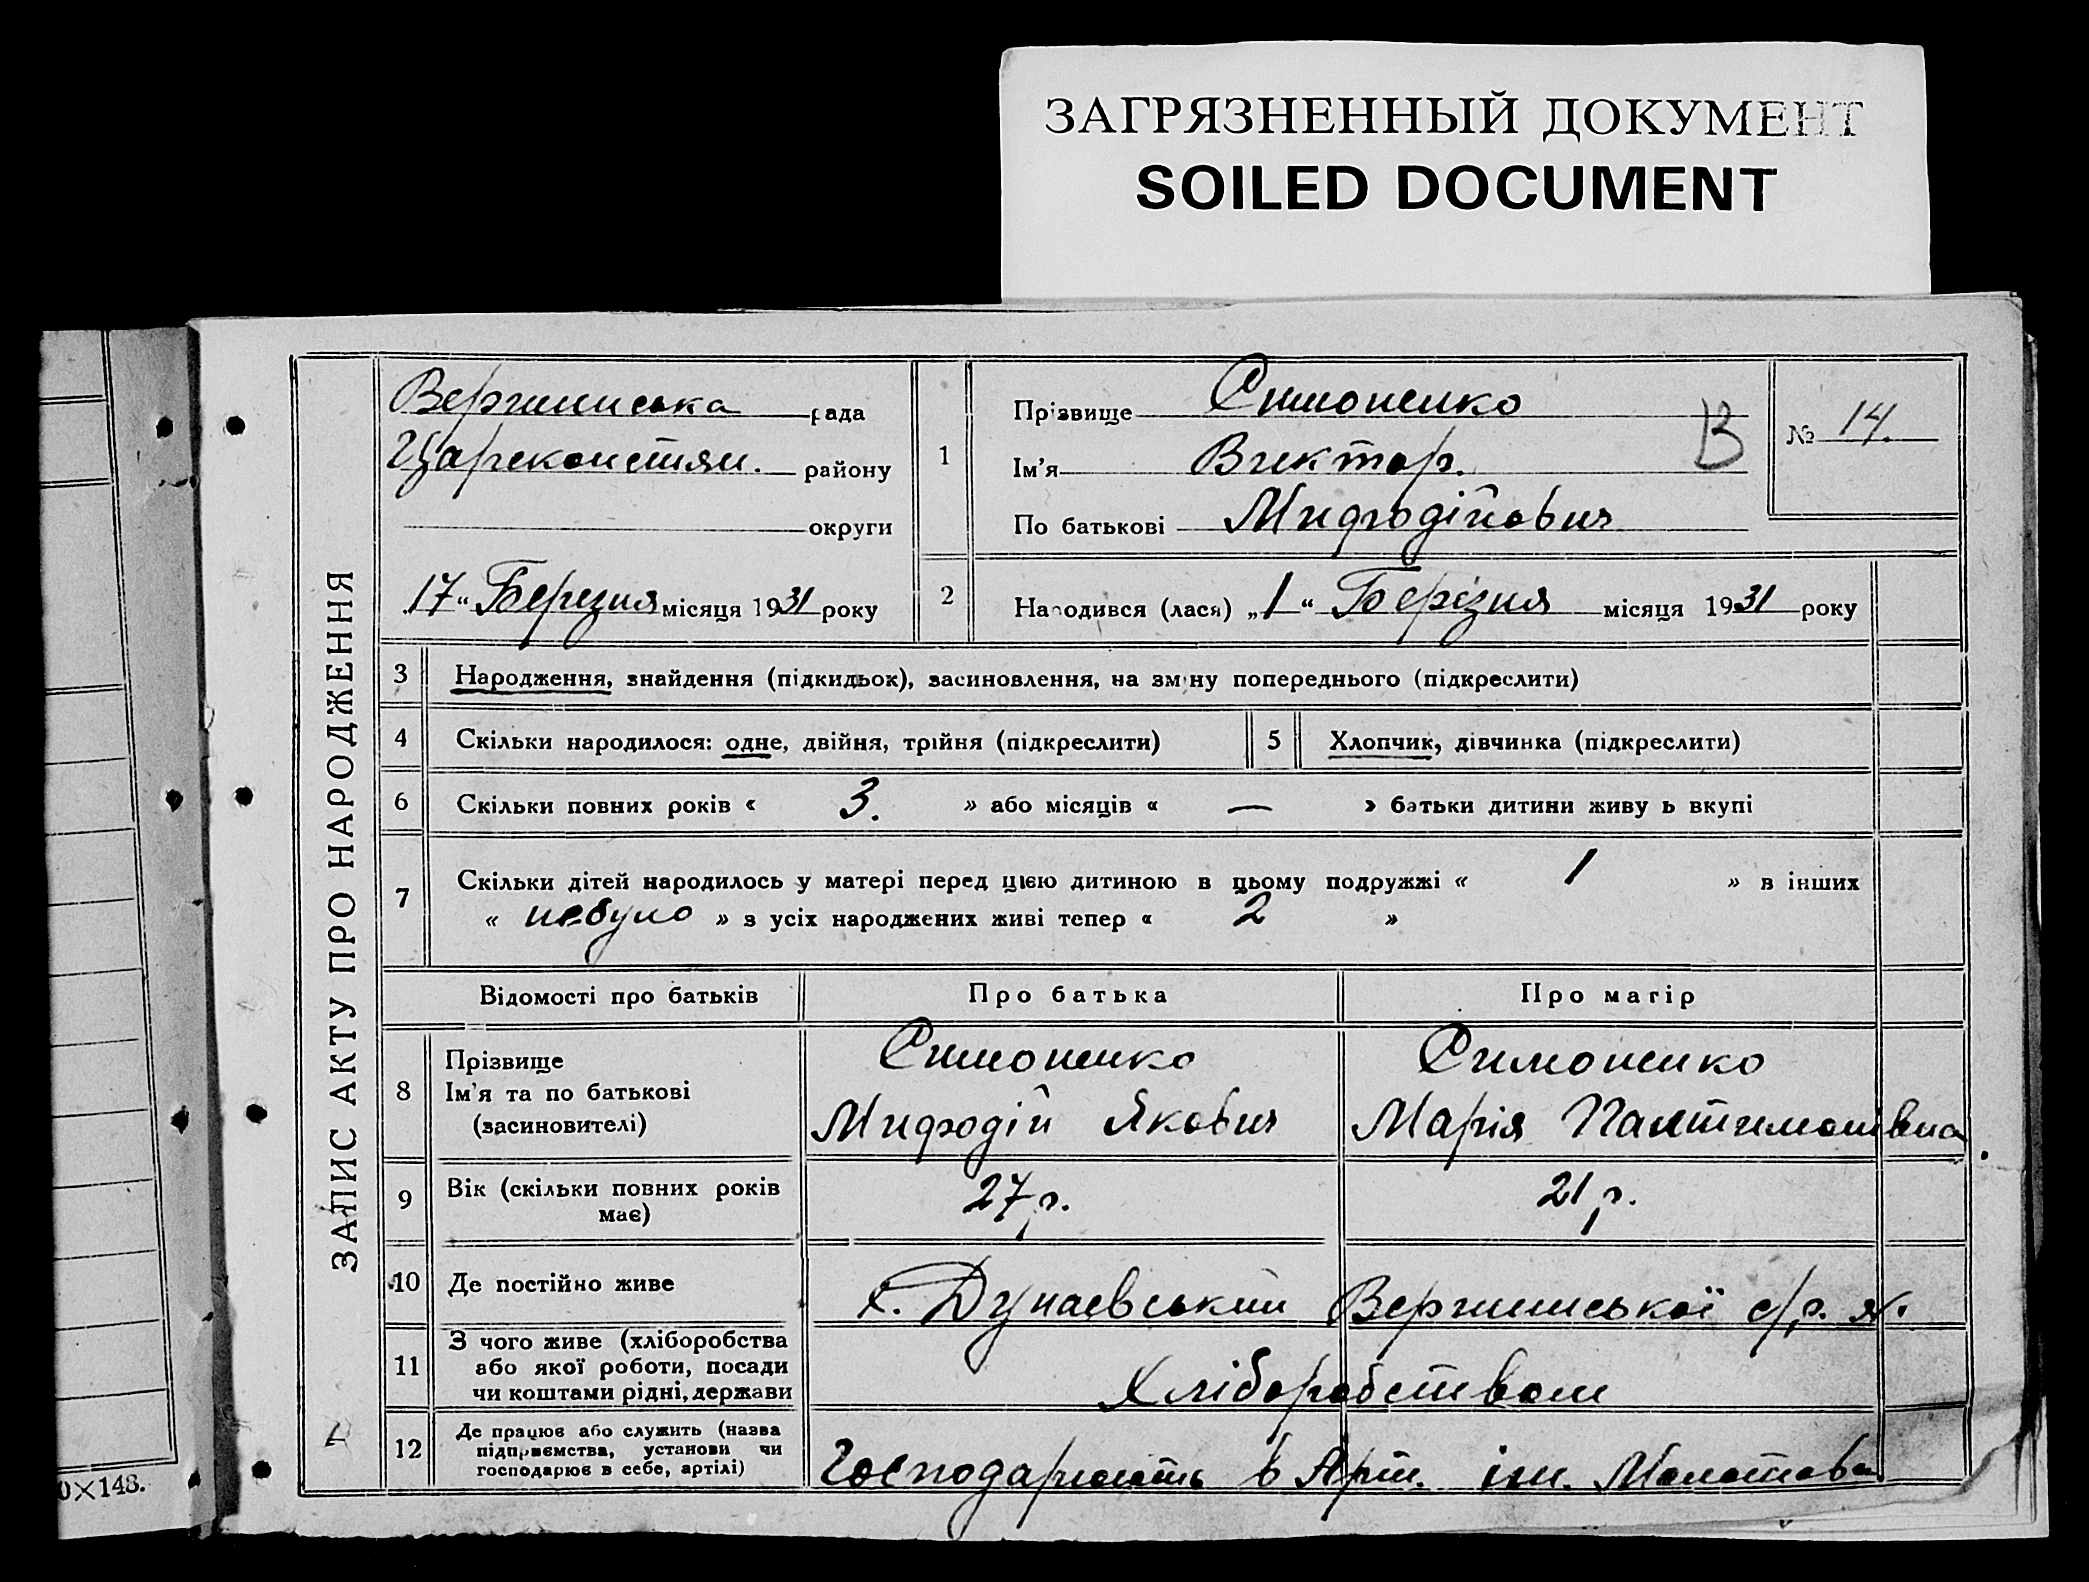 ЗАГРЯЗНЕННЫЙ ДОКУМЕНТ
SOILED DOCUMENT
ЗАПИС АКТУ ПРО НАРОДЖЕННЯ
Вержинська рада
Цареконстян. району
округи
17 “ Березня місяця 1931 року
1
Прізвище Симоненко
Ім’я Виктор.
По батькові Мифодійович
В
№ 14.
2
Народився (лася) „ 1 “ Березня місяця 1931 року
3 Народження, знайдення (підкидьок), засиновлення, на зміну попереднього (підкреслити)
4 Скільки народилося: одне, двійня, трійня (підкреслити)
5 Хлопчик, дівчинка (підкреслити)
6 Скільки повних років « 3. » або місяців « — » батьки дитини живуть вкупі
7 Скільки дітей народилось у матері перед цією дитиною в цьому подружжі « 1 » в інших
« небуло » з усіх народжених живі тепер « 2 »
Відомості про батьків Про батька Про матір
8 Прізвище Симоненко Симоненко
Ім’я та по батькові
(засиновителі) Мифодій Якович Марія Пантимонівна
9 Вік (скільки повних років
має) 27 р. 21 р.
10 Де постійно живе х. Дунаєвський Вержинської с/р.
11 З чого живе (хліборобства
або якої роботи, посади
чи коштами рідні, держави Хліборобством
12 Де працює або служить (назва
підприємства, установи чи
господарює в себе, артілі) Господарюють в Арт. ім. Молотова
0×148.